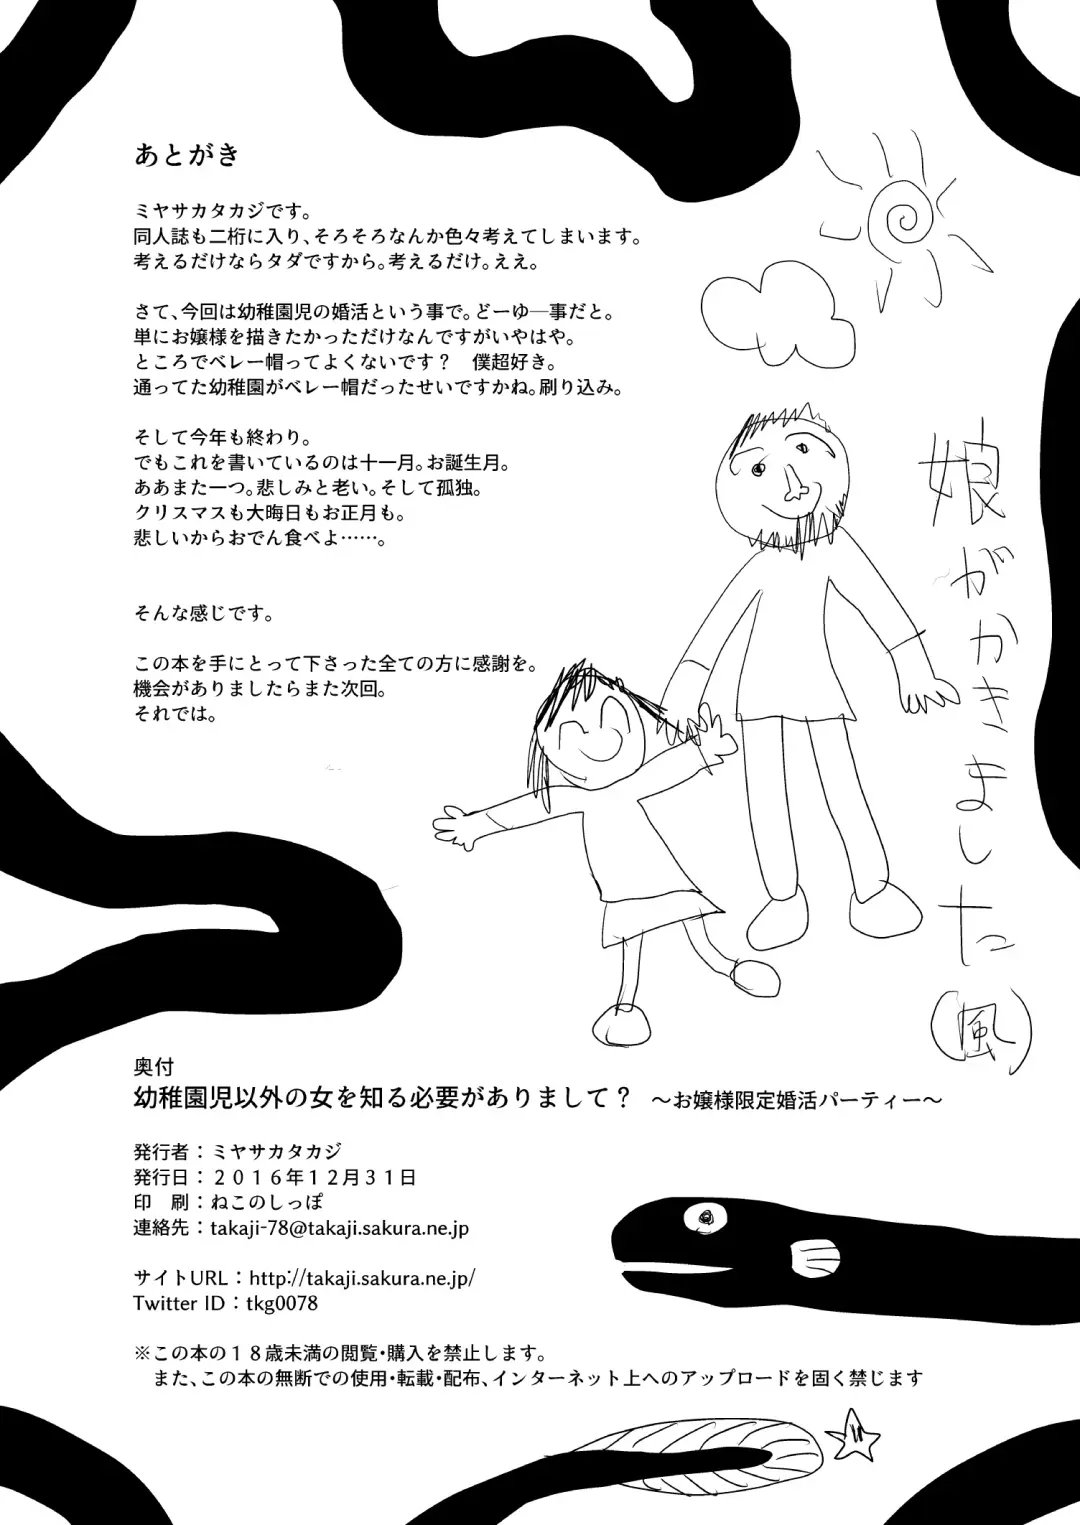 あとがき
ミヤサカタカジです。
同人誌も二桁に入り、そろそろなんか色々考えてしまいます。
考えるだけならタダですから。考えるだけ。ええ。
さて、今回は幼稚園児の婚活という事で。どーゆ―事だと。
単にお嬢様を描きたかっただけなんですがいやはや。
ところでベレー帽ってよくないです？　僕超好き。
通ってた幼稚園がベレー帽だったせいですかね。刷り込み。
そして今年も終わり。
でもこれを書いているのは十一月。お誕生月。
ああまた一つ。悲しみと老い。そして孤独。
クリスマスも大晦日もお正月も。
悲しいからおでん食べよ……。
そんな感じです。
この本を手にとって下さった全ての方に感謝を。
機会がありましたらまた次回。
それでは。
娘がかきました(風)
奥付
幼稚園児以外の女を知る必要がありまして？　～お嬢様限定婚活パーティー～
発行者：ミヤサカタカジ
発行日：２０１６年１２月３１日
印　刷：ねこのしっぽ
連絡先：takaji-78@takaji.sakura.ne.jp
サイトURL：http://takaji.sakura.ne.jp/
Twitter ID：tkg0078
※この本の１８歳未満の閲覧・購入を禁止します。
また、この本の無断での使用・転載・配布、インターネット上へのアップロードを固く禁じます